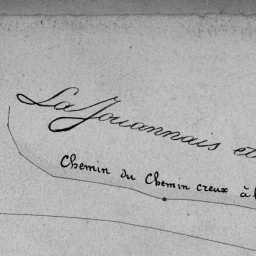 La Jouannais et
Chemin du Chemin creux à l